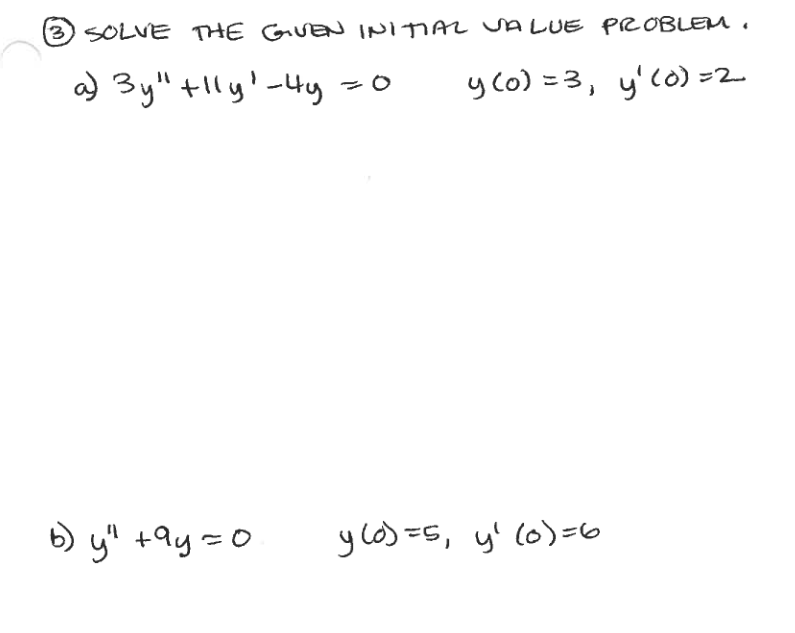 ③ SOLVE THE GIVEN INITIAL VALUE PROBLEM.
a) 3y" + 11y' - 4y = 0 y(0) = 3, y'(0) = 2
b) y" + 9y = 0 y(0) = 5, y'(0) = 6